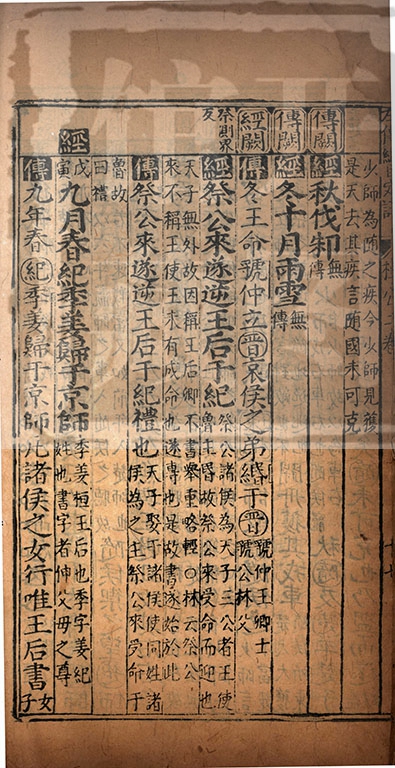 少師為隨之疾今少師見獲
是天去其疾言隨國未可克
傳闕
經秋伐邾無傳
傳闕
經冬十月雨雪無傳
經闕
傳冬王命虢仲立晋哀侯之弟緡于晋虢仲王卿士虢公林父
祭則界反
經祭公來遂逆王后于紀祭公諸侯為天子三公者王使魯主昏故祭公來受命而迎也
天子無外故因稱王后卿不書舉重略輕○林云祭公
來不稱王使王未有成命也遂傳也是故書遂始於此
傳祭公來遂逆王后于紀禮也天子娶于諸侯使同姓諸侯為之主祭公來受命于
魯故曰禮
經
戊寅九月春紀季姜歸于京師季姜桓王后也季字姜紀姓也書字者伸父母之尊
傳九年春紀季姜歸于京師凡諸侯之女行唯王后書女子